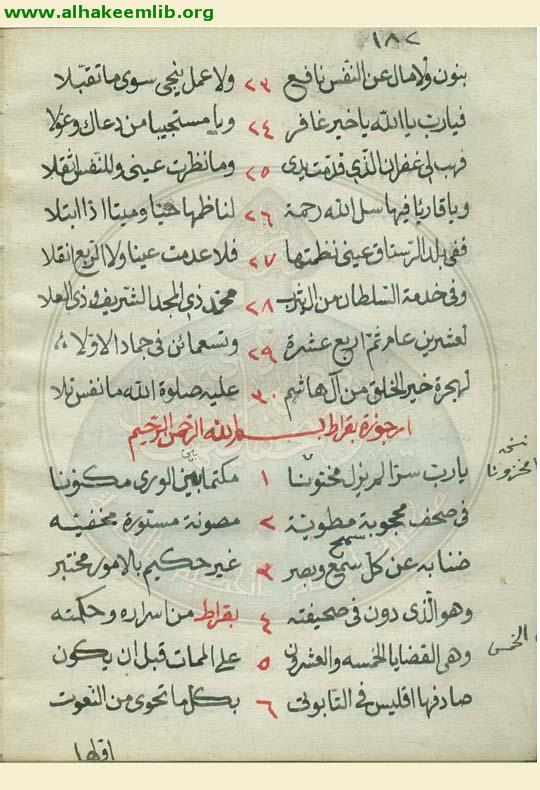 www.alhakeemlib.org
١٨٧
بنون ولا مال عن النفس نافع ٢٣ ولا عمل ينجى سوى ما تقبلا
فيارب يا الله يا خير غافر ٢٤ ويا مستجيبا من دعاك وعولا
فهب لى غفران الذى قدمت يدى ٢٥ وما نظرت عينى وللنفس اثقلا
ويا قاريا فيها سل الله رحمة ٢٦ لناظمها حيا وميتا اذا ابتلا
ففى بلد الرستاق عينى نظمتها ٢٧ فلا عدمت عينا ولا الربع انقلا
وفى خدمة السلطان من ٢٨ محمد ذى المجد الشريف وذى العلا
لعشرين عام ثم اربع عشرة ٢٩ وتسعمائن فى جماد الاولا
لهجرة خير الخلق من آل هاشم ٣٠ عليه صلوة الله ما نفس تلا
ارجوزة بقراط بسم الله الرحمن الرحيم
يارب سرا لم يزل مختونا ١ مكتما بين الورى مكنونا
نسخه
مخزونا
فى صحف محجوبة مطويّة ٢ مصونة مستورة مخفيّه
سمح
ضنا به عن كل سميع وبصر ٣ غير حكيم بالامور مختبر
وهو الذى دون فى صحيفته ٤ بقراط من اسراره وحكمته
وهى القضايا الخمسه والعشرون ٥ على الممات قبل ان يكون
الخمس
صادفها اقليس فى التابوت ٦ بكل ما تحوى من النعوت
اولها